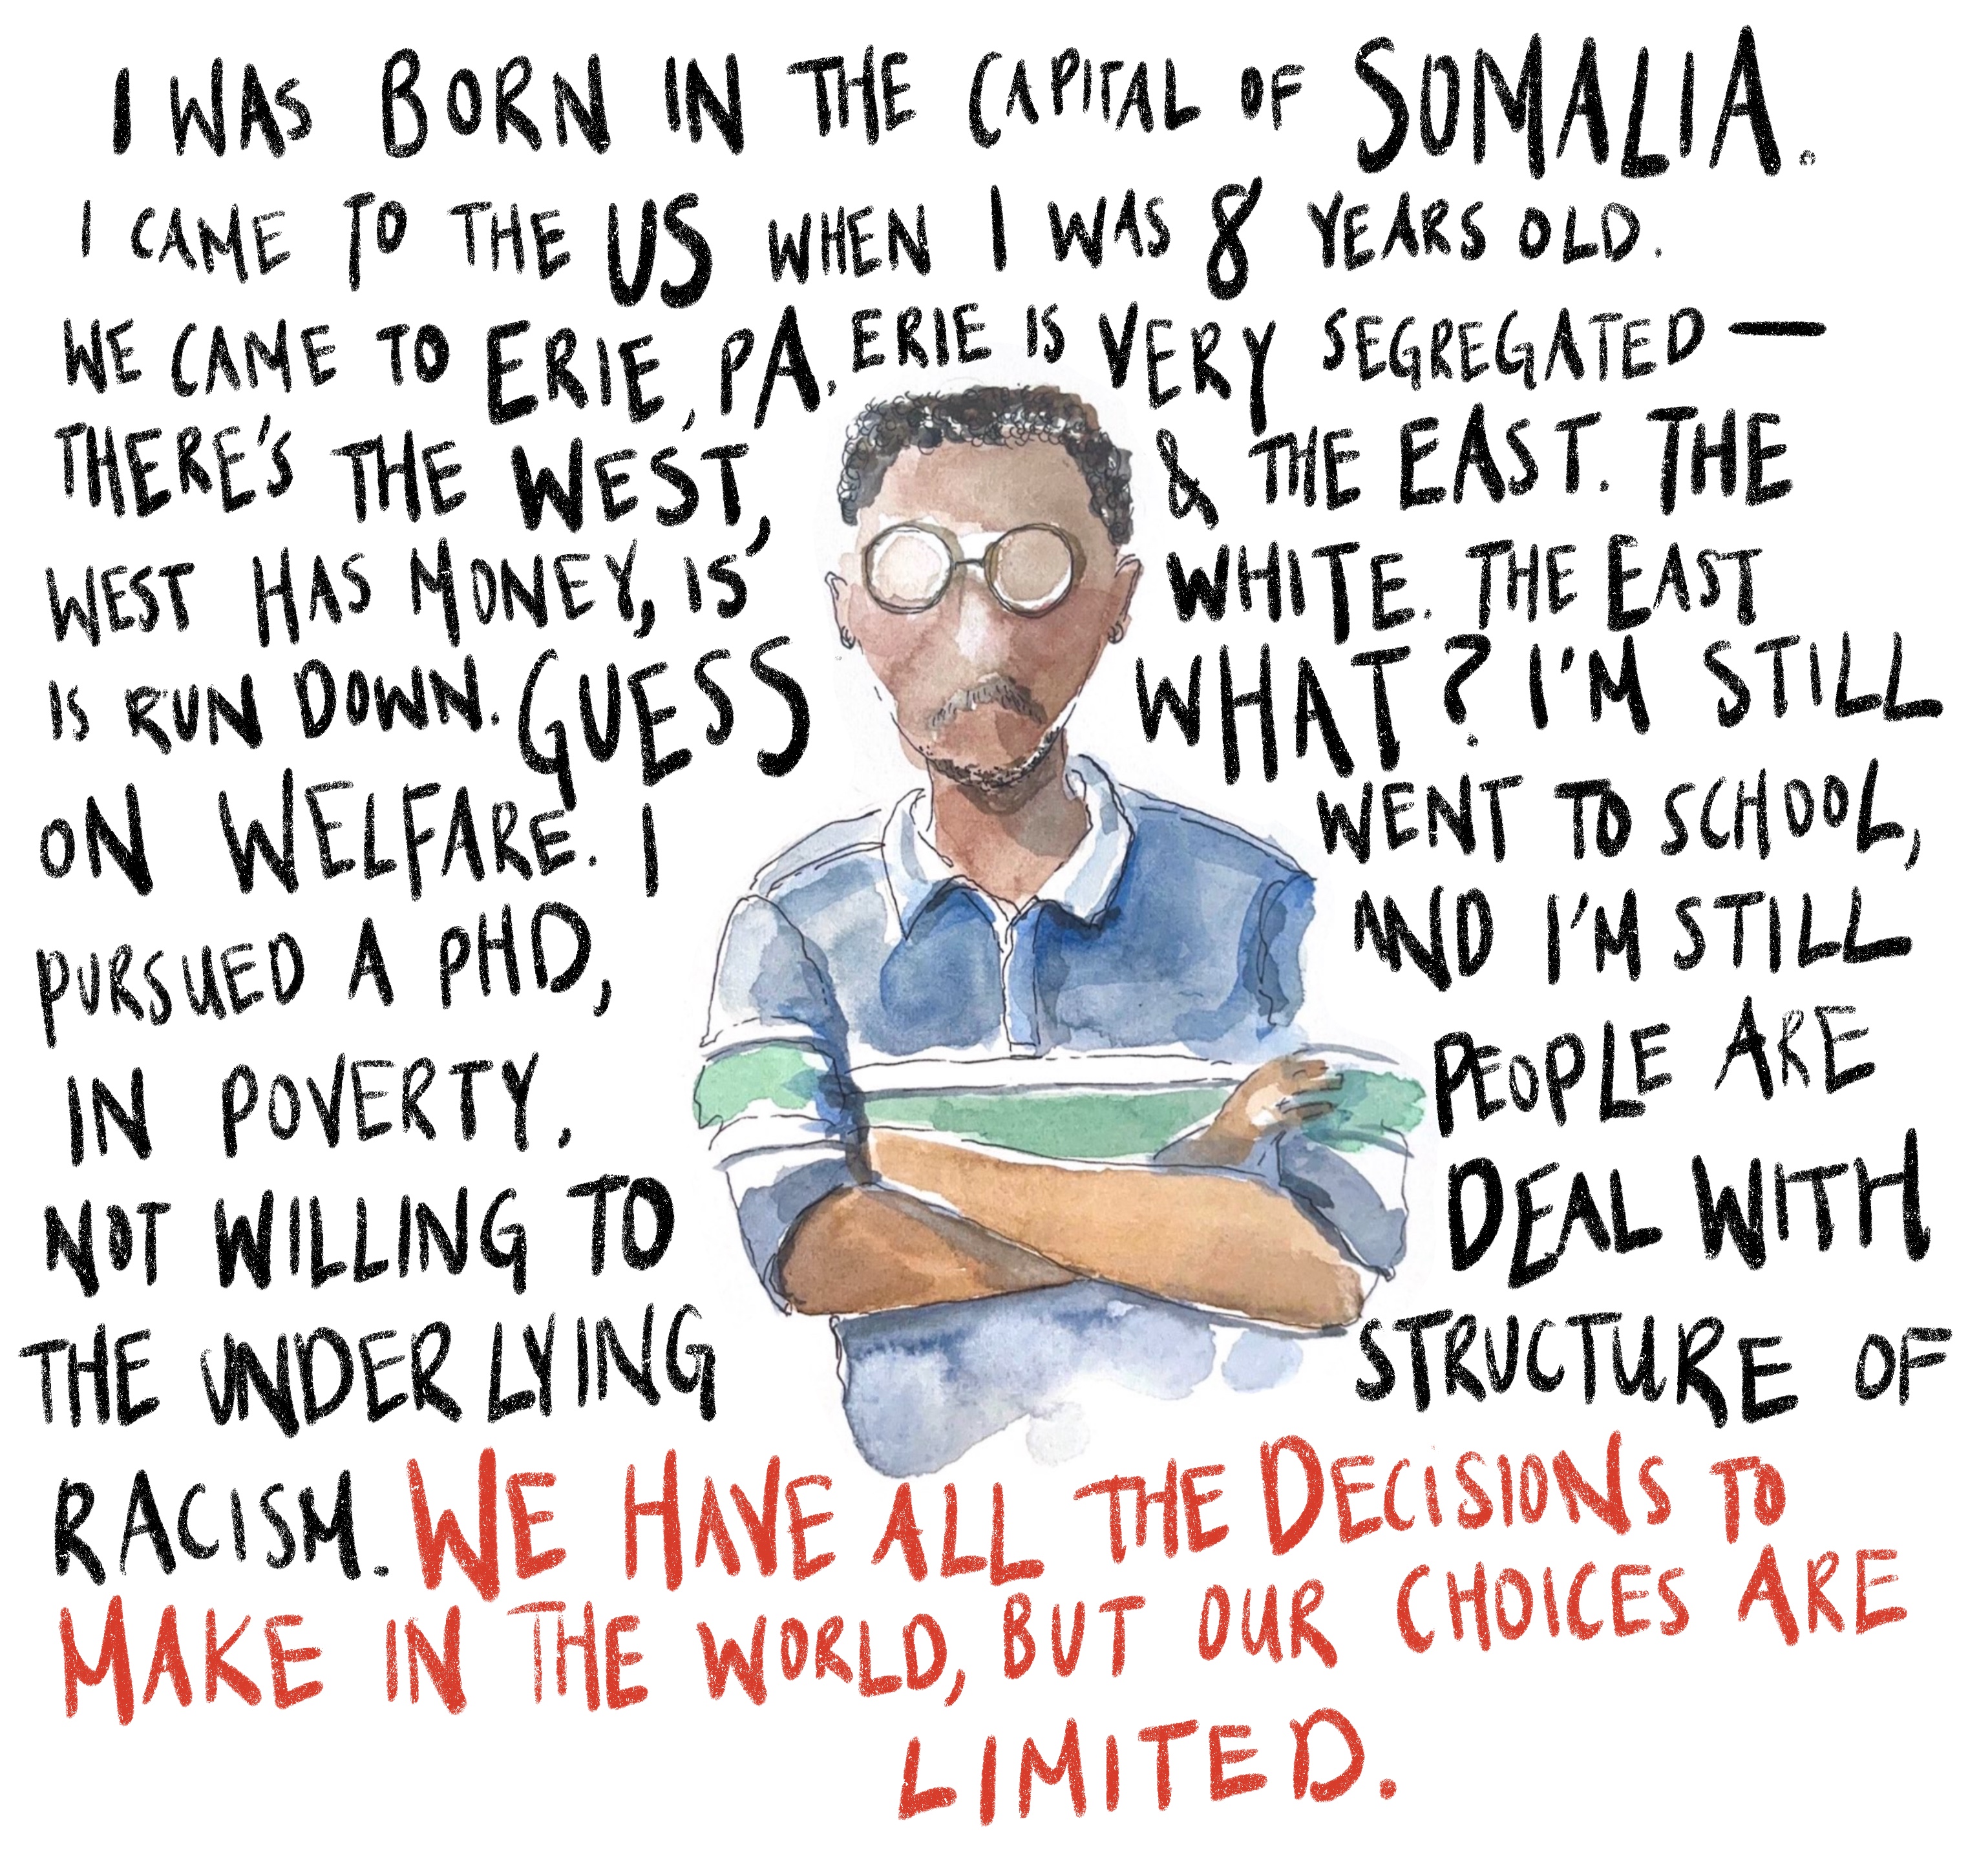 I WAS BORN IN THE CAPITAL OF SOMALIA.
I CAME TO THE US WHEN I WAS 8 YEARS OLD.
WE CAME TO ERIE, PA. ERIE IS VERY SEGREGATED —
THERE'S THE WEST, & THE EAST. THE
WEST HAS MONEY, IS WHITE. THE EAST
IS RUN DOWN. GUESS WHAT? I'M STILL
ON WELFARE. I WENT TO SCHOOL,
PURSUED A PHD, AND I'M STILL
IN POVERTY. PEOPLE ARE
NOT WILLING TO DEAL WITH
THE UNDERLYING STRUCTURE OF
RACISM. WE HAVE ALL THE DECISIONS TO
MAKE IN THE WORLD, BUT OUR CHOICES ARE
LIMITED.